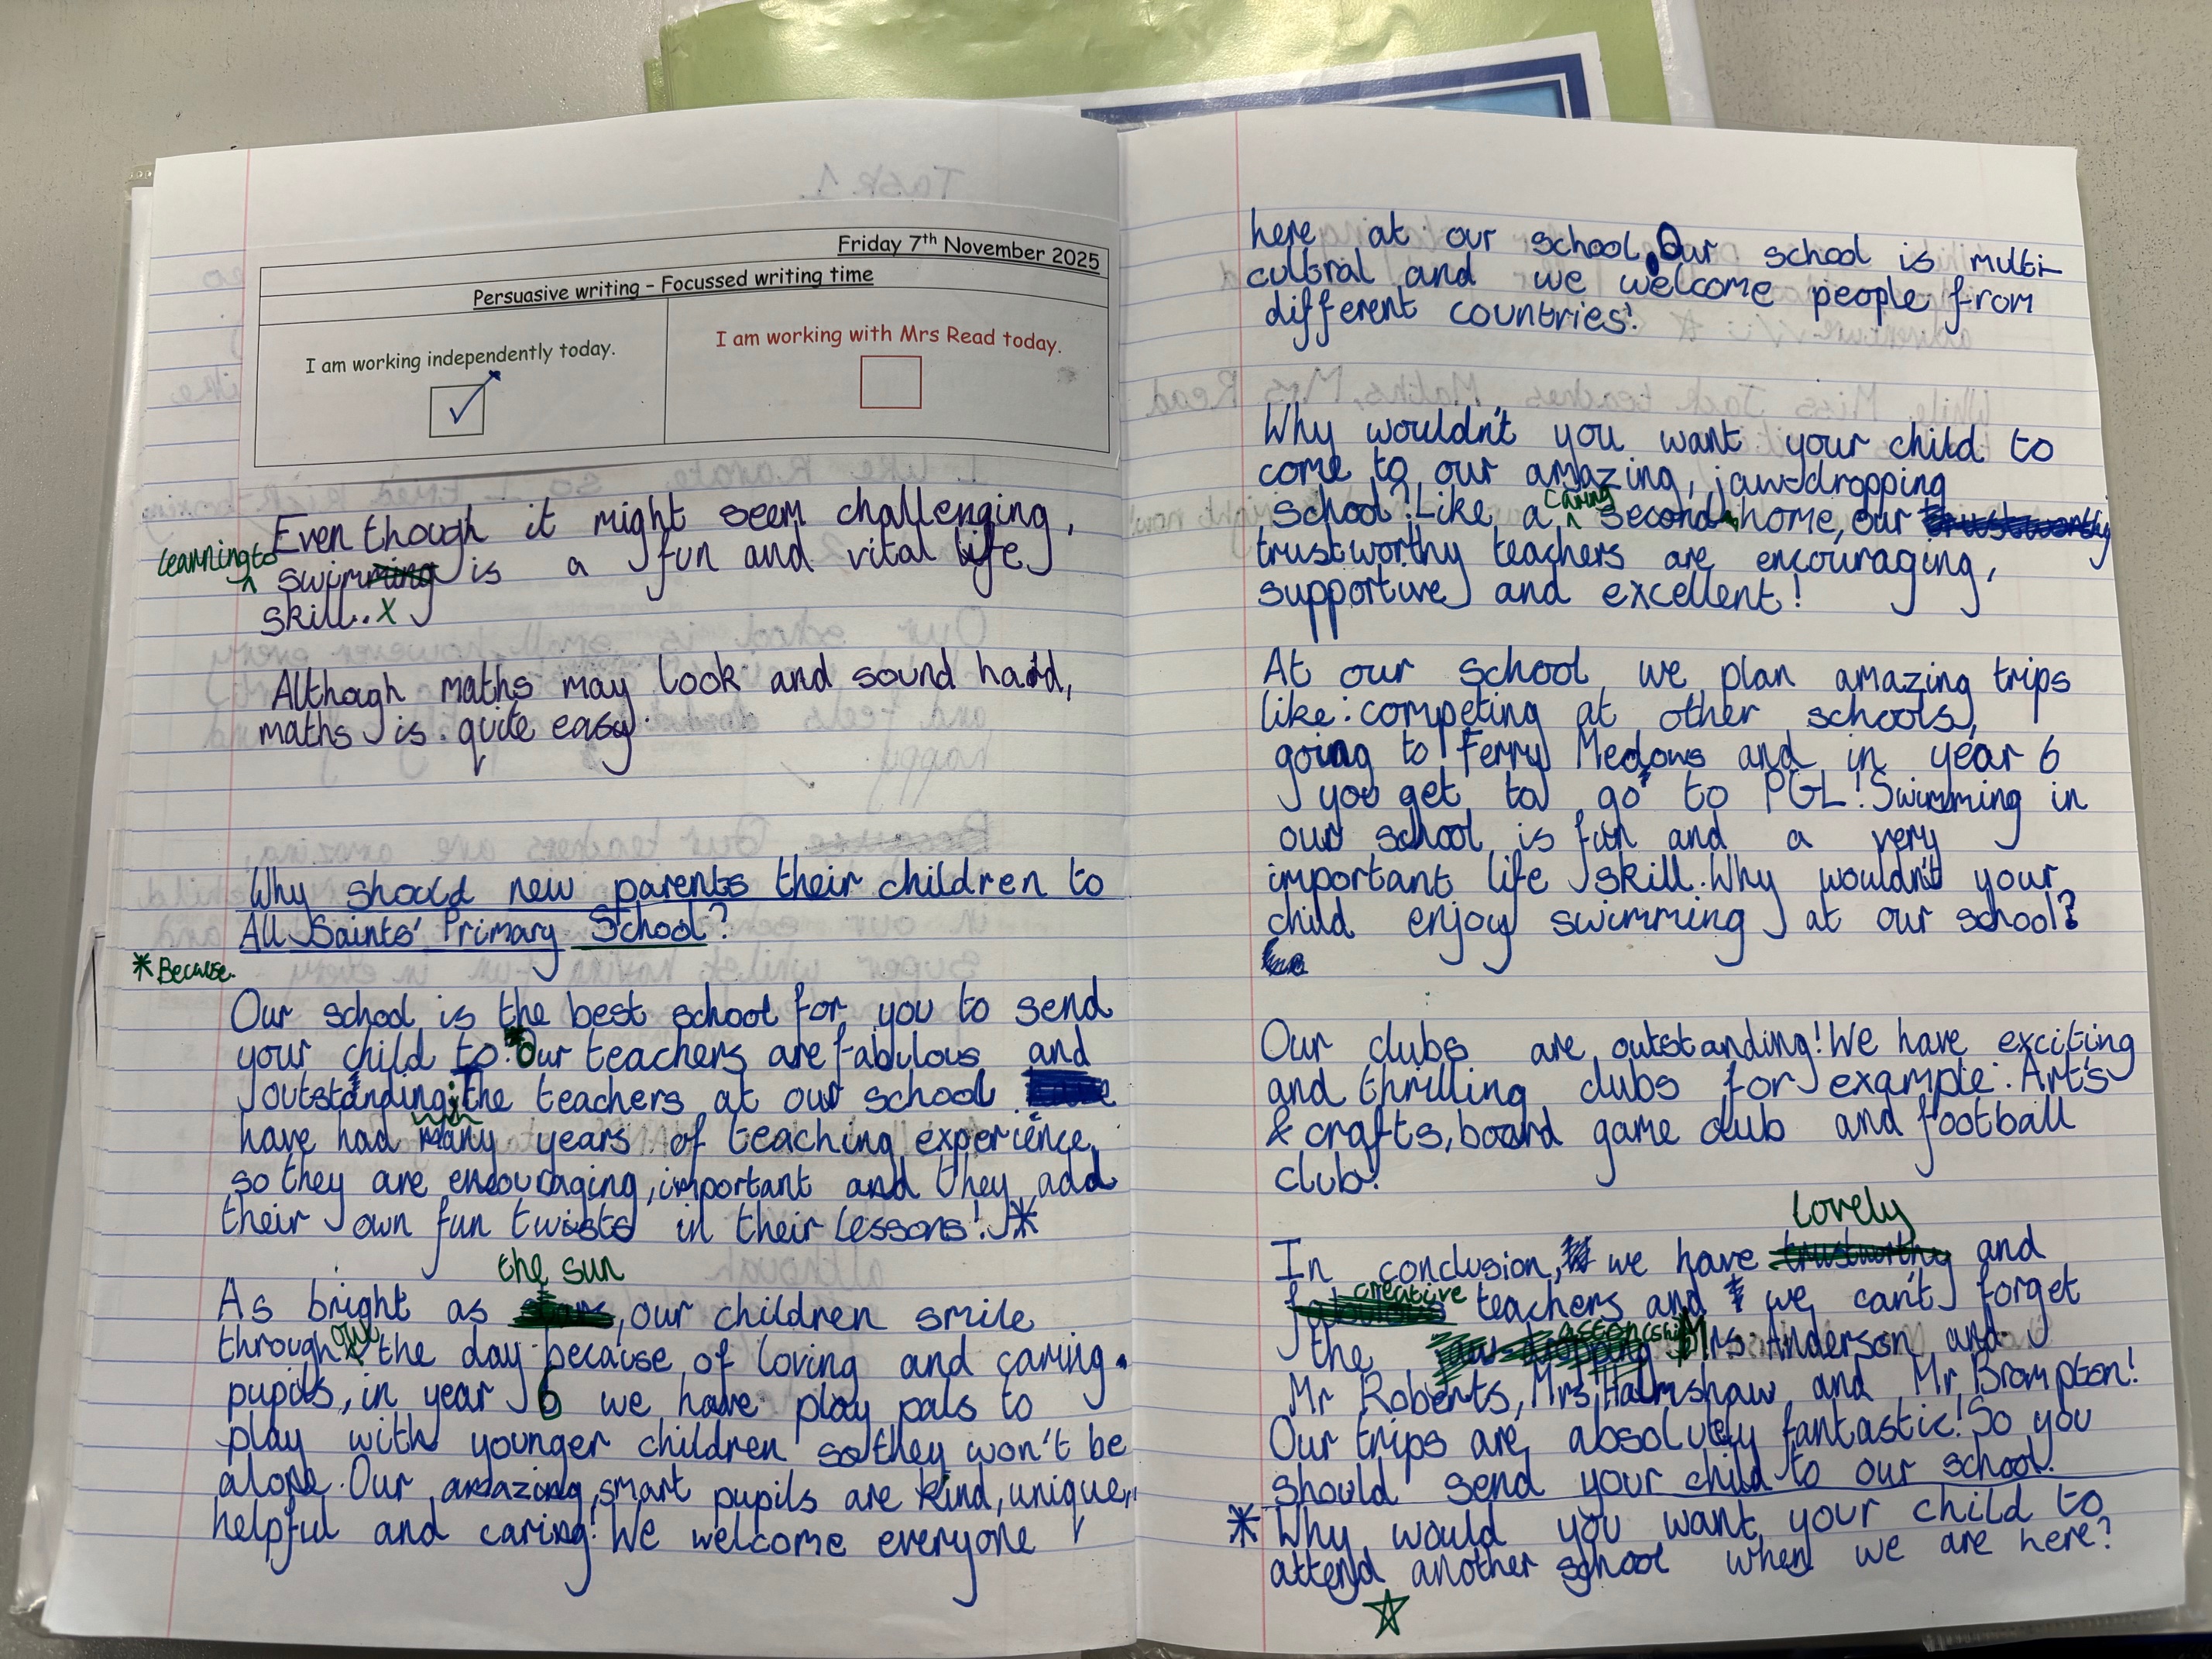 Friday 7th November 2025
Persuasive writing – Focussed writing time
I am working independently today.
I am working with Mrs Read today.
Even though it might seem challenging,
learning to swim is a fun and vital life
skill. x
Although maths may look and sound hard,
maths is quite easy.
Why should new parents their children to
All Saints' Primary School?
* Because
Our school is the best school for you to send
your child to. Our teachers are fabulous and
outstanding; the teachers at our school
have had many years of teaching experience,
so they are encouraging, important and they add
their own fun twists in their lessons! *
As bright as the sun, our children smile
throughout the day because of loving and caring
pupils, in year 6 we have play pals to
play with younger children so they won't be
alone. Our amazing, smart pupils are kind, unique,
helpful and caring! We welcome everyone
here at our school. Our school is multi-
cultral and we welcome people from
different countries!
Why wouldn't you want your child to
come to our amazing, jaw-dropping
school? Like a caring second home, our trustworthy
trustworthy teachers are encouraging,
supportive and excellent!
At our school we plan amazing trips
like: competing at other schools,
going to Ferry Medows and in year 6
you get to go to PGL! Swimming in
our school is fun and a very
important life skill. Why wouldn't your
child enjoy swimming at our school?
Our clubs are outstanding! We have exciting
and thrilling clubs for example: Arts
& crafts, board game club and football
club!
In conclusion, we have trustworthy lovely and
fabulous creative teachers and we can't forget
the Mrs Anderson and
Mr Roberts, Mrs Halmshaw and Mr Brompton!
Our trips are absolutely fantastic! So you
should send your child to our school!
* Why would you want your child to
attend another school when we are here?